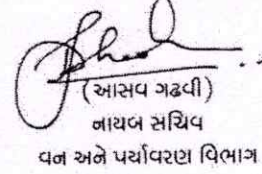 (આસવ ગઢવી)
નાયબ સચિવ
વન અને પર્યાવરણ વિભાગ